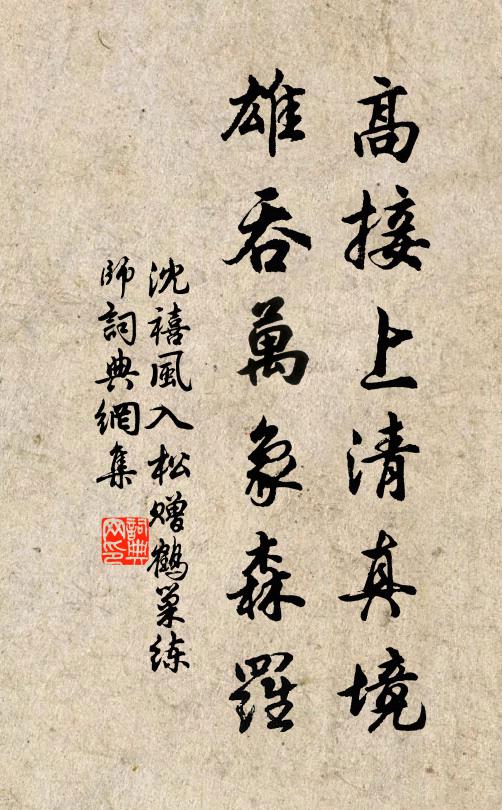 高接上清真境
雄吞萬象森羅
沈禧風入松贈鶴巢練
師詞典網集
詞典
网印